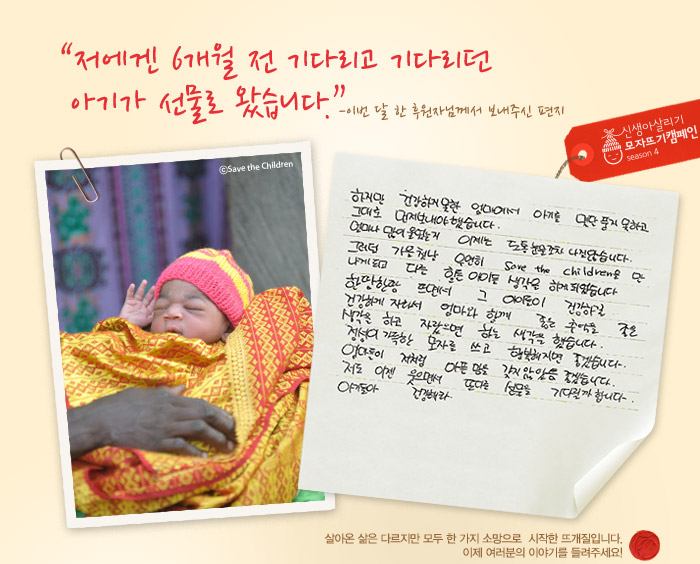 “저에겐 6개월 전 기다리고 기다리던
아기가 선물로 왔습니다.”
-이번 달 한 후원자님께서 보내주신 편지
신생아살리기
모자뜨기캠페인
season 4
ⓒSave the Children
하지만 건강하지 못한 엄마에서 아기를 만단 품지 못하고
그대로 먼저보내야했습니다.
얼마나 많이 울었는지 이제는 도통눈물조차 나질않습니다.
그러던 가운 첫날 우연히 Save the children을 만
나게되고 다른 힘든 아이들 생각을 하게되었습니다
한땀한땀 뜨면서 그 아이들이 건강하길
건강하게 자라서 엄마와 함께 좋은 추억도 좋은
생각을 하고 자랐으면 하는 생각을 했습니다.
정성이 가득한 모자를 쓰고 행복해지면 좋겠습니다.
엄마들이 저처럼 아픈 맘을 갖지않았음 좋겠습니다.
저도 이젠 웃으면서 또다른 선물을 기다릴까합니다.
아가들아 건강해라
살아온 삶은 다르지만 모두 한 가지 소망으로 시작한 뜨개질입니다.
이제 여러분의 이야기를 들려주세요!